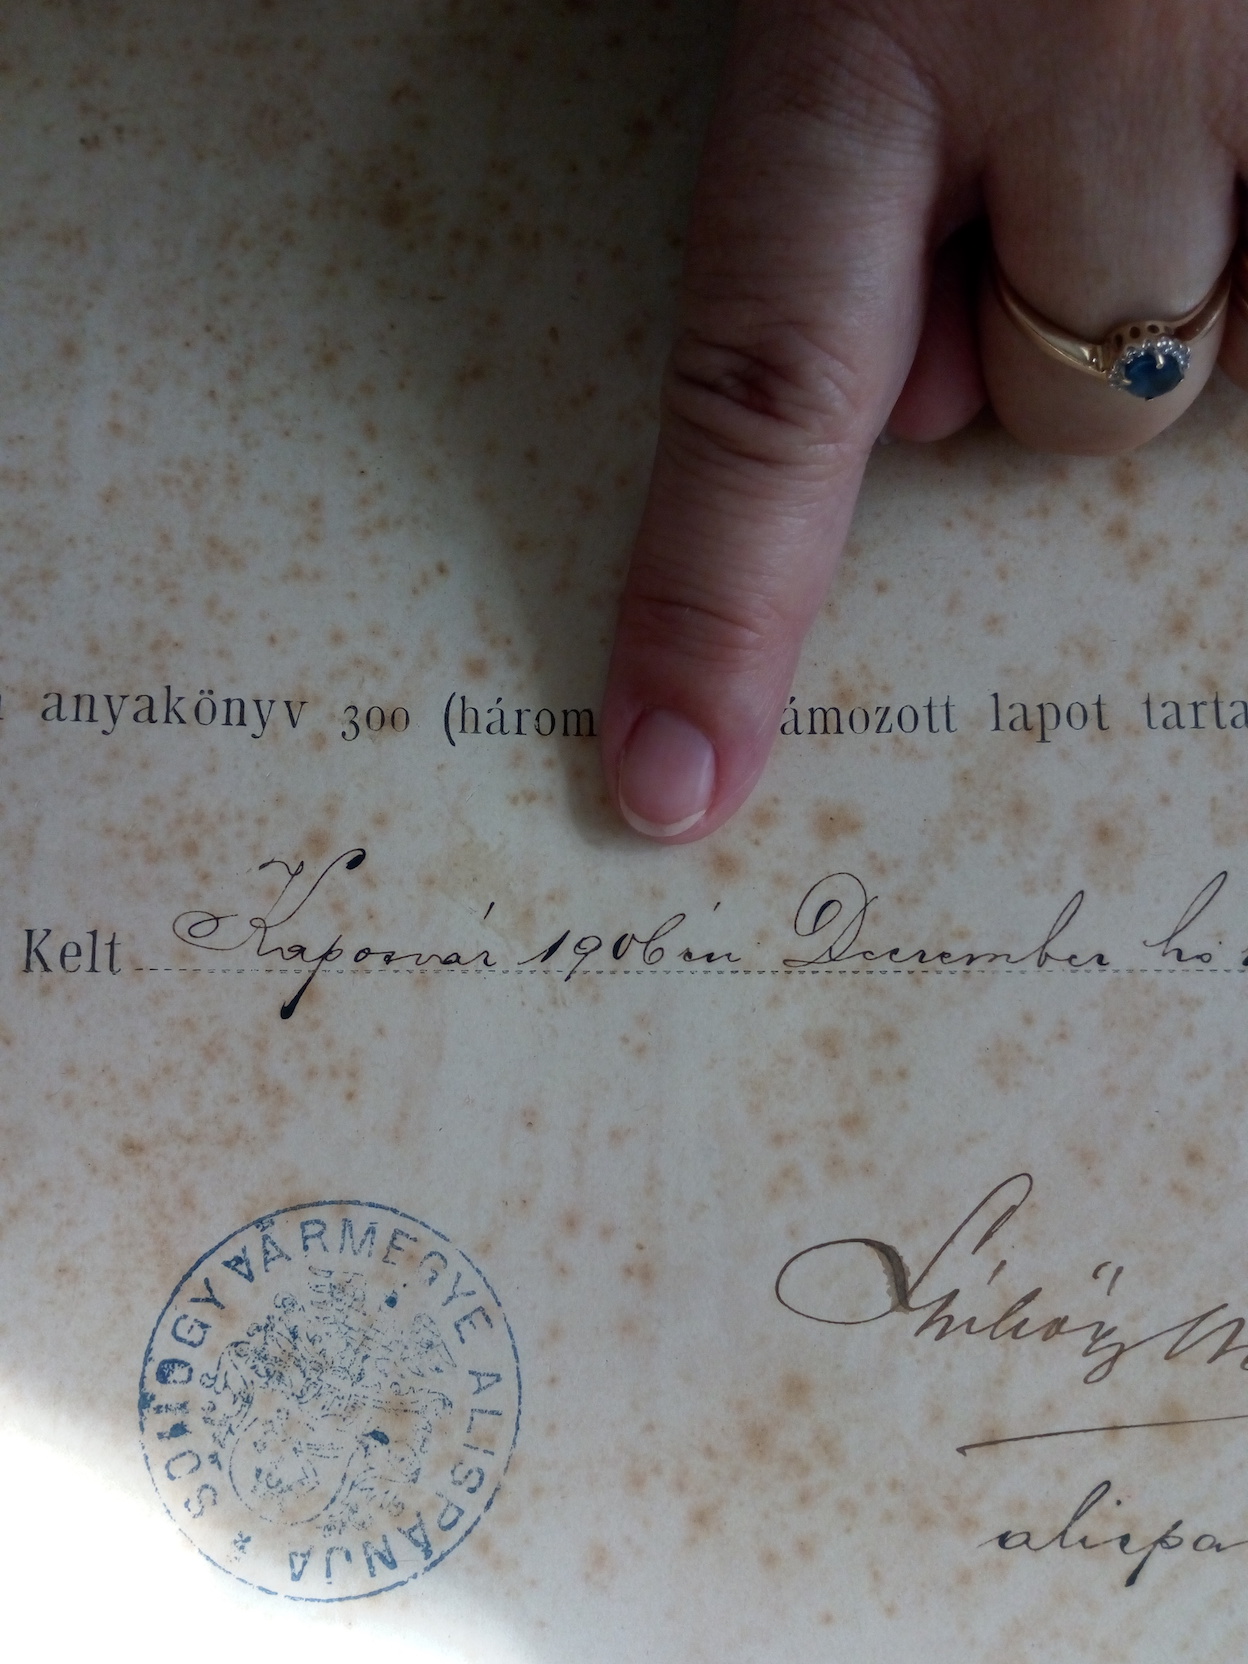 anyakönyv 300 (három ámozott lapot tarta
Kelt Kaposvár 1906 én Deczember hó
SOMOGYVÁRMEGYE ALISPÁNJA *
alispá